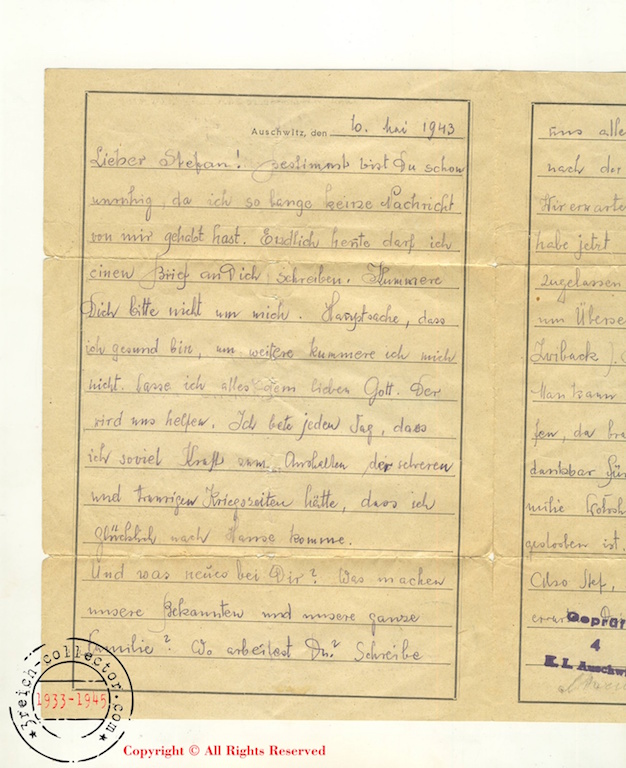 Auschwitz, den 10. Mai 1943
Lieber Stefan! Bestimmt bist Du schon
unruhig, da ich so lange keine Nachricht
von mir gehabt hast. Endlich heute darf ich
einen Brief an Dich schreiben. Kummere
Dich bitte nicht um mich. Hauptsache, dass
ich gesund bin, um weitere kummere ich mich
nicht. Lasse ich alles dem lieben Gott. Der
wird uns helfen. Ich bete jeden Tag, dass
ich soviel Kraft zum der schweren
und traurigen Kriegszeiten hätte, dass ich
glücklich nach Hause komme.
Und was neues bei Dir? Was machen
unsere Bekannten und unsere ganze
Familie? Wo arbeitest Du? Schreibe
uns alle
nach der
Wir erwarte
habe jetzt
zugelassen
um Überse
Zwiback).
Man kann
fen, da bra
dankbar für
milie
gestorben ist.
Also Stef,
Geprüf
4
K. L. Auschwi
3reich-collector.com
1933-1945
Copyright © All Rights Reserved